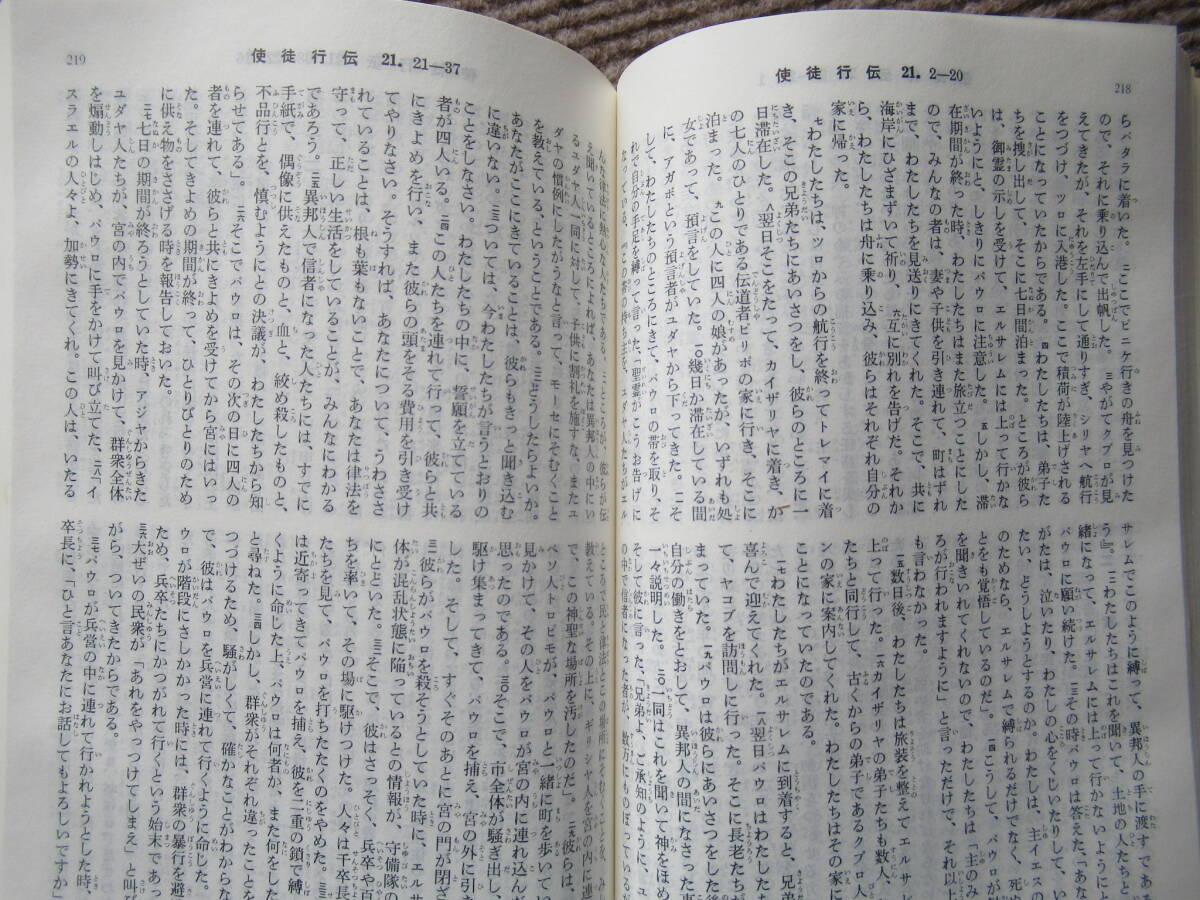 使徒行伝 21. 2—20
218
らパタラに着いた。 二ここでピニケ行きの舟を見つけた
ので、それに乗り込んで出帆した。 三やがてクプロが見
えてきたが、それを左手にして通りすぎ、シリヤへ航行
をつづけ、ツロに入港した。ここで積荷が陸上げされる
ことになっていたからである。 四わたしたちは、弟子た
ちを捜し出して、そこに七日間泊まった。ところが彼ら
は、御霊の示しを受けて、エルサレムには上って行かな
いようにと、しきりにパウロに注意した。 五しかし、滞
在期間が終った時、わたしたちはまた旅立つことにした
ので、みんなの者は、妻や子供を引き連れて、町はずれ
まで、わたしたちを見送りにきてくれた。そこで、共に
海岸にひざまずいて祈り、 六互に別れを告げた。それか
ら、わたしたちは舟に乗り込み、彼らはそれぞれ自分の
家に帰った。
七わたしたちは、ツロからの航行を終ってトレマイに着
き、そこの兄弟たちにあいさつをし、彼らのところに一
日滞在した。 八翌日そこをたって、カイザリヤに着き、か
の七人のひとりである伝道者ピリポの家に行き、そこに
泊まった。 九この人に四人の娘があったが、いずれも処
女であって、預言をしていた。 一〇幾日か滞在している間
に、アガボという預言者がユダヤから下ってきた。 二そ
して、わたしたちのところにきて、パウロの帯を取り、そ
れで自分の手足を縛って言った、「聖霊がこうお告げに
なっている、『この帯の持ち主を、ユダヤ人たちがエル
サレムでこのように縛って、異邦人の手に渡すであろ
う』」。 三わたしたちはこれを聞いて、土地の人たちと
緒になって、エルサレムには上って行かないようにと
パウロに願い続けた。 三その時パウロは答えた、「あな
がたは、泣いたり、わたしの心をくじいたりして、い
たい、どうしようとするのか。わたしは、主イエスの
のためなら、エルサレムで縛られるだけでなく、死ぬ
とをも覚悟しているのだ」。 一四こうして、パウロが
を聞きいれてくれないので、わたしたちは「主のみ
ろが行われますように」と言っただけで、それ以上
も言わなかった。
一五数日後、わたしたちは旅装を整えてエルサレ
上って行った。 一六カイザリヤの弟子たちも数人、
たちと同行して、古くからの弟子であるクプロ人
ンの家に案内してくれた。わたしたちはその家に
ことになっていたのである。
一七わたしたちがエルサレムに到着すると、兄弟
喜んで迎えてくれた。 一八翌日パウロはわたした
て、ヤコブを訪問しに行った。そこに長老たちが
まっていた。 一九パウロは彼らにあいさつをした
自分の働きをとおして、異邦人の間になさった事
一々説明した。 二〇一同はこれを聞いて神をほめ
そして彼に言った、「兄弟よ、ご承知のように、
の中で信者になった者が、数万にものぼっているが
使徒行伝 21. 21—37
219
んな律法に熱心な人たちである。 三ところが、彼らが伝
え聞いているところによれば、あなたは異邦人の中にい
るユダヤ人一同に対して、子供に割礼を施すな、またユ
ダヤの慣例にしたがうなと言って、モーセにそむくこと
を教えている、ということである。 三どうしたらよいか。
あなたがここにきていることは、彼らもきっと聞き込む
に違いない。 三ついては、今わたしたちが言うとおりの
ことをしなさい。わたしたちの中に、誓願を立てている
者が四人いる。 二四この人たちを連れて行って、彼らと共
にきよめを行い、また彼らの頭をそる費用を引き受け
てやりなさい。そうすれば、あなたについて、うわささ
れていることは、根も葉もないことで、あなたは律法を
守って、正しい生活をしていることが、みんなにわかる
であろう。 二五異邦人で信者になった人たちには、すでに
手紙で、偶像に供えたものと、血と、絞め殺したものと、
不品行とを、慎むようにとの決議が、わたしたちから知
らせてある」。 二六そこでパウロは、その次の日に四人の
者を連れて、彼らと共にきよめを受けてから宮にはいっ
た。そしてきよめの期間が終って、ひとりびとりのため
に供え物をささげる時を報告しておいた。
二七七日の期間が終ろうとしていた時、アジヤからきた
ユダヤ人たちが、宮の内でパウロを見かけて、群衆全体
を煽動しはじめ、パウロに手をかけて叫び立てた、 二八「イ
スラエルの人々よ、加勢にきてくれ。この人は、いたる
ところで民と律法とこの場所にそむくことを、みんなに
教えている。その上に、ギリシヤ人を宮の内に連
で、この神聖な場所を汚したのだ」。 二九彼らは、
ペソ人トロピモが、パウロと一緒に町を歩いてい
見かけて、その人をパウロが宮の内に連れ込んだ
思ったのである。 三〇そこで、市全体が騒ぎ出し、
駆け集まってきて、パウロを捕え、宮の外に引き
した。そして、すぐそのあとに宮の門が閉ざ
三彼らがパウロを殺そうとしていた時に、エル
体が混乱状態に陥っているとの情報が、守備隊の
にとどいた。 三そこで、彼はさっそく、兵卒や百
ちを率いて、その場に駆けつけた。人々は千卒長
たちを見て、パウロを打ちたたくのをやめた。 三
は近寄ってきてパウロを捕え、彼を二重の鎖で縛
くように命じた上、パウロは何者か、また何をした
と尋ねた。 三四しかし、群衆がそれぞれ違ったことを
つづけるため、騒がしくて、確かなことがわからな
で、彼はパウロを兵営に連れて行くように命じた。
ウロが階段にさしかかった時には、群衆の暴行を避
ため、兵卒たちにかつがれて行くという始末であっ
三六大ぜいの民衆が「あれをやっつけてしまえ」と叫び
がら、ついてきたからである。
三七パウロが兵営の中に連れて行かれようとした時、
卒長に、「ひと言あなたにお話してもよろしいですか」